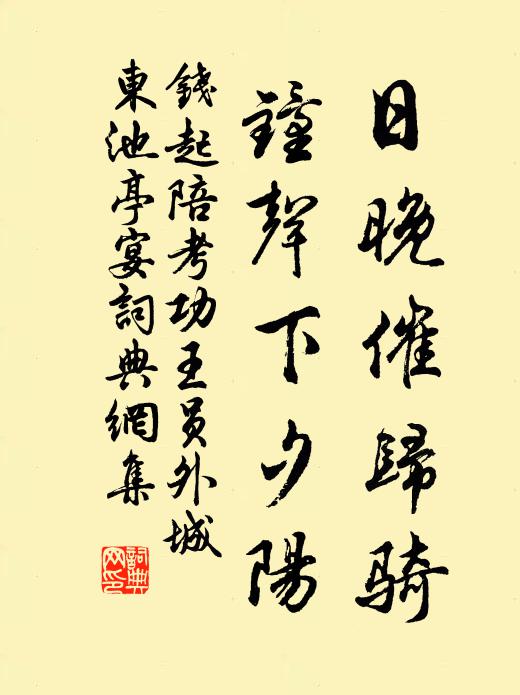 日晚催歸骑
鐘聲下夕陽
錢起陪考功王员外城
東池亭宴詞典網集
詞典
网印